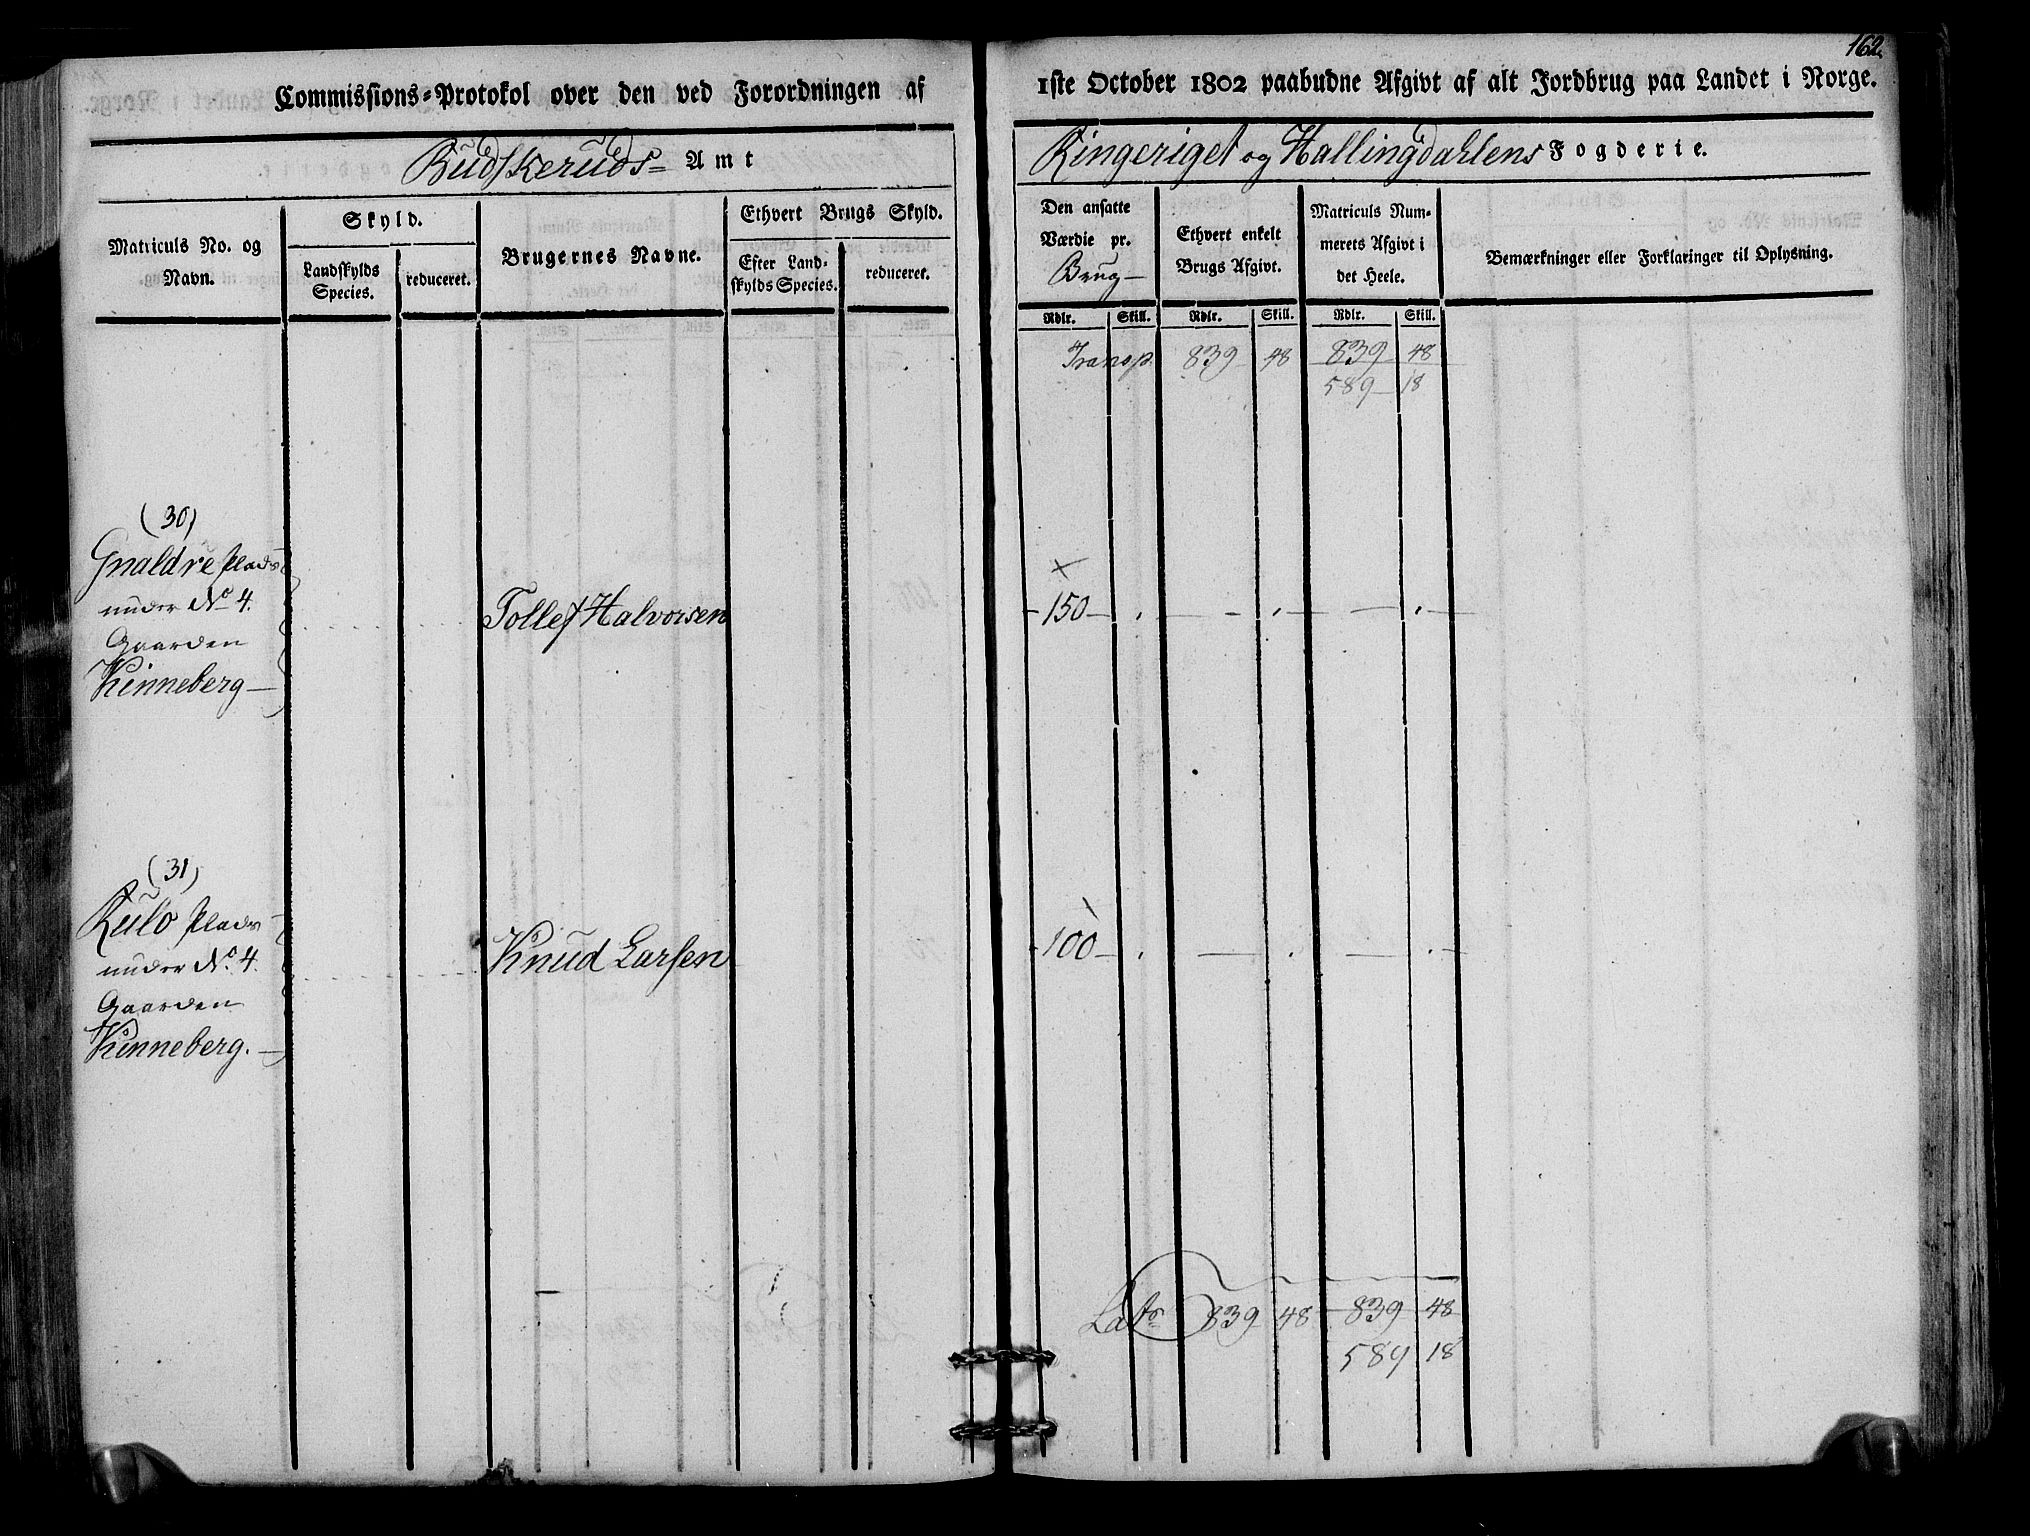 162.
Commissions-Protokol over den ved Forordningen af 1ste October 1802 paabudne Afgivt af alt Jordbrug paa Landet i Norge.
Budskeruds Amt
Ringeriget og Hallingdahlens Fogderie.
Matriculs No. og
Navn.
Skyld.
Landskylds
Species.
reduceret.
Brugernes Navne.
Ethvert Brugs Skyld.
Efter Land-
skylds Species.
reduceret.
Den ansatte
Værdie pr.
Brug
Ethvert enkelt
Brugs Afgivt.
Matriculs Num-
merets Afgivt i
det Heele.
Bemærkninger eller Forklaringer til Oplysning.
Rdlr. Skill. Rdlr. Skill. Rdlr. Skill.
Transp. 839 48 839 48
589 18
(30)
Gnaldre Plads
under No 4.
Gaarden
Kinneberg
Tollef Halvorsen
150
(31)
Rulo Plads
under No. 4.
Gaarden
Kinneberg.
Knud Larsen
100
Lats 839 48 839 48
589 18